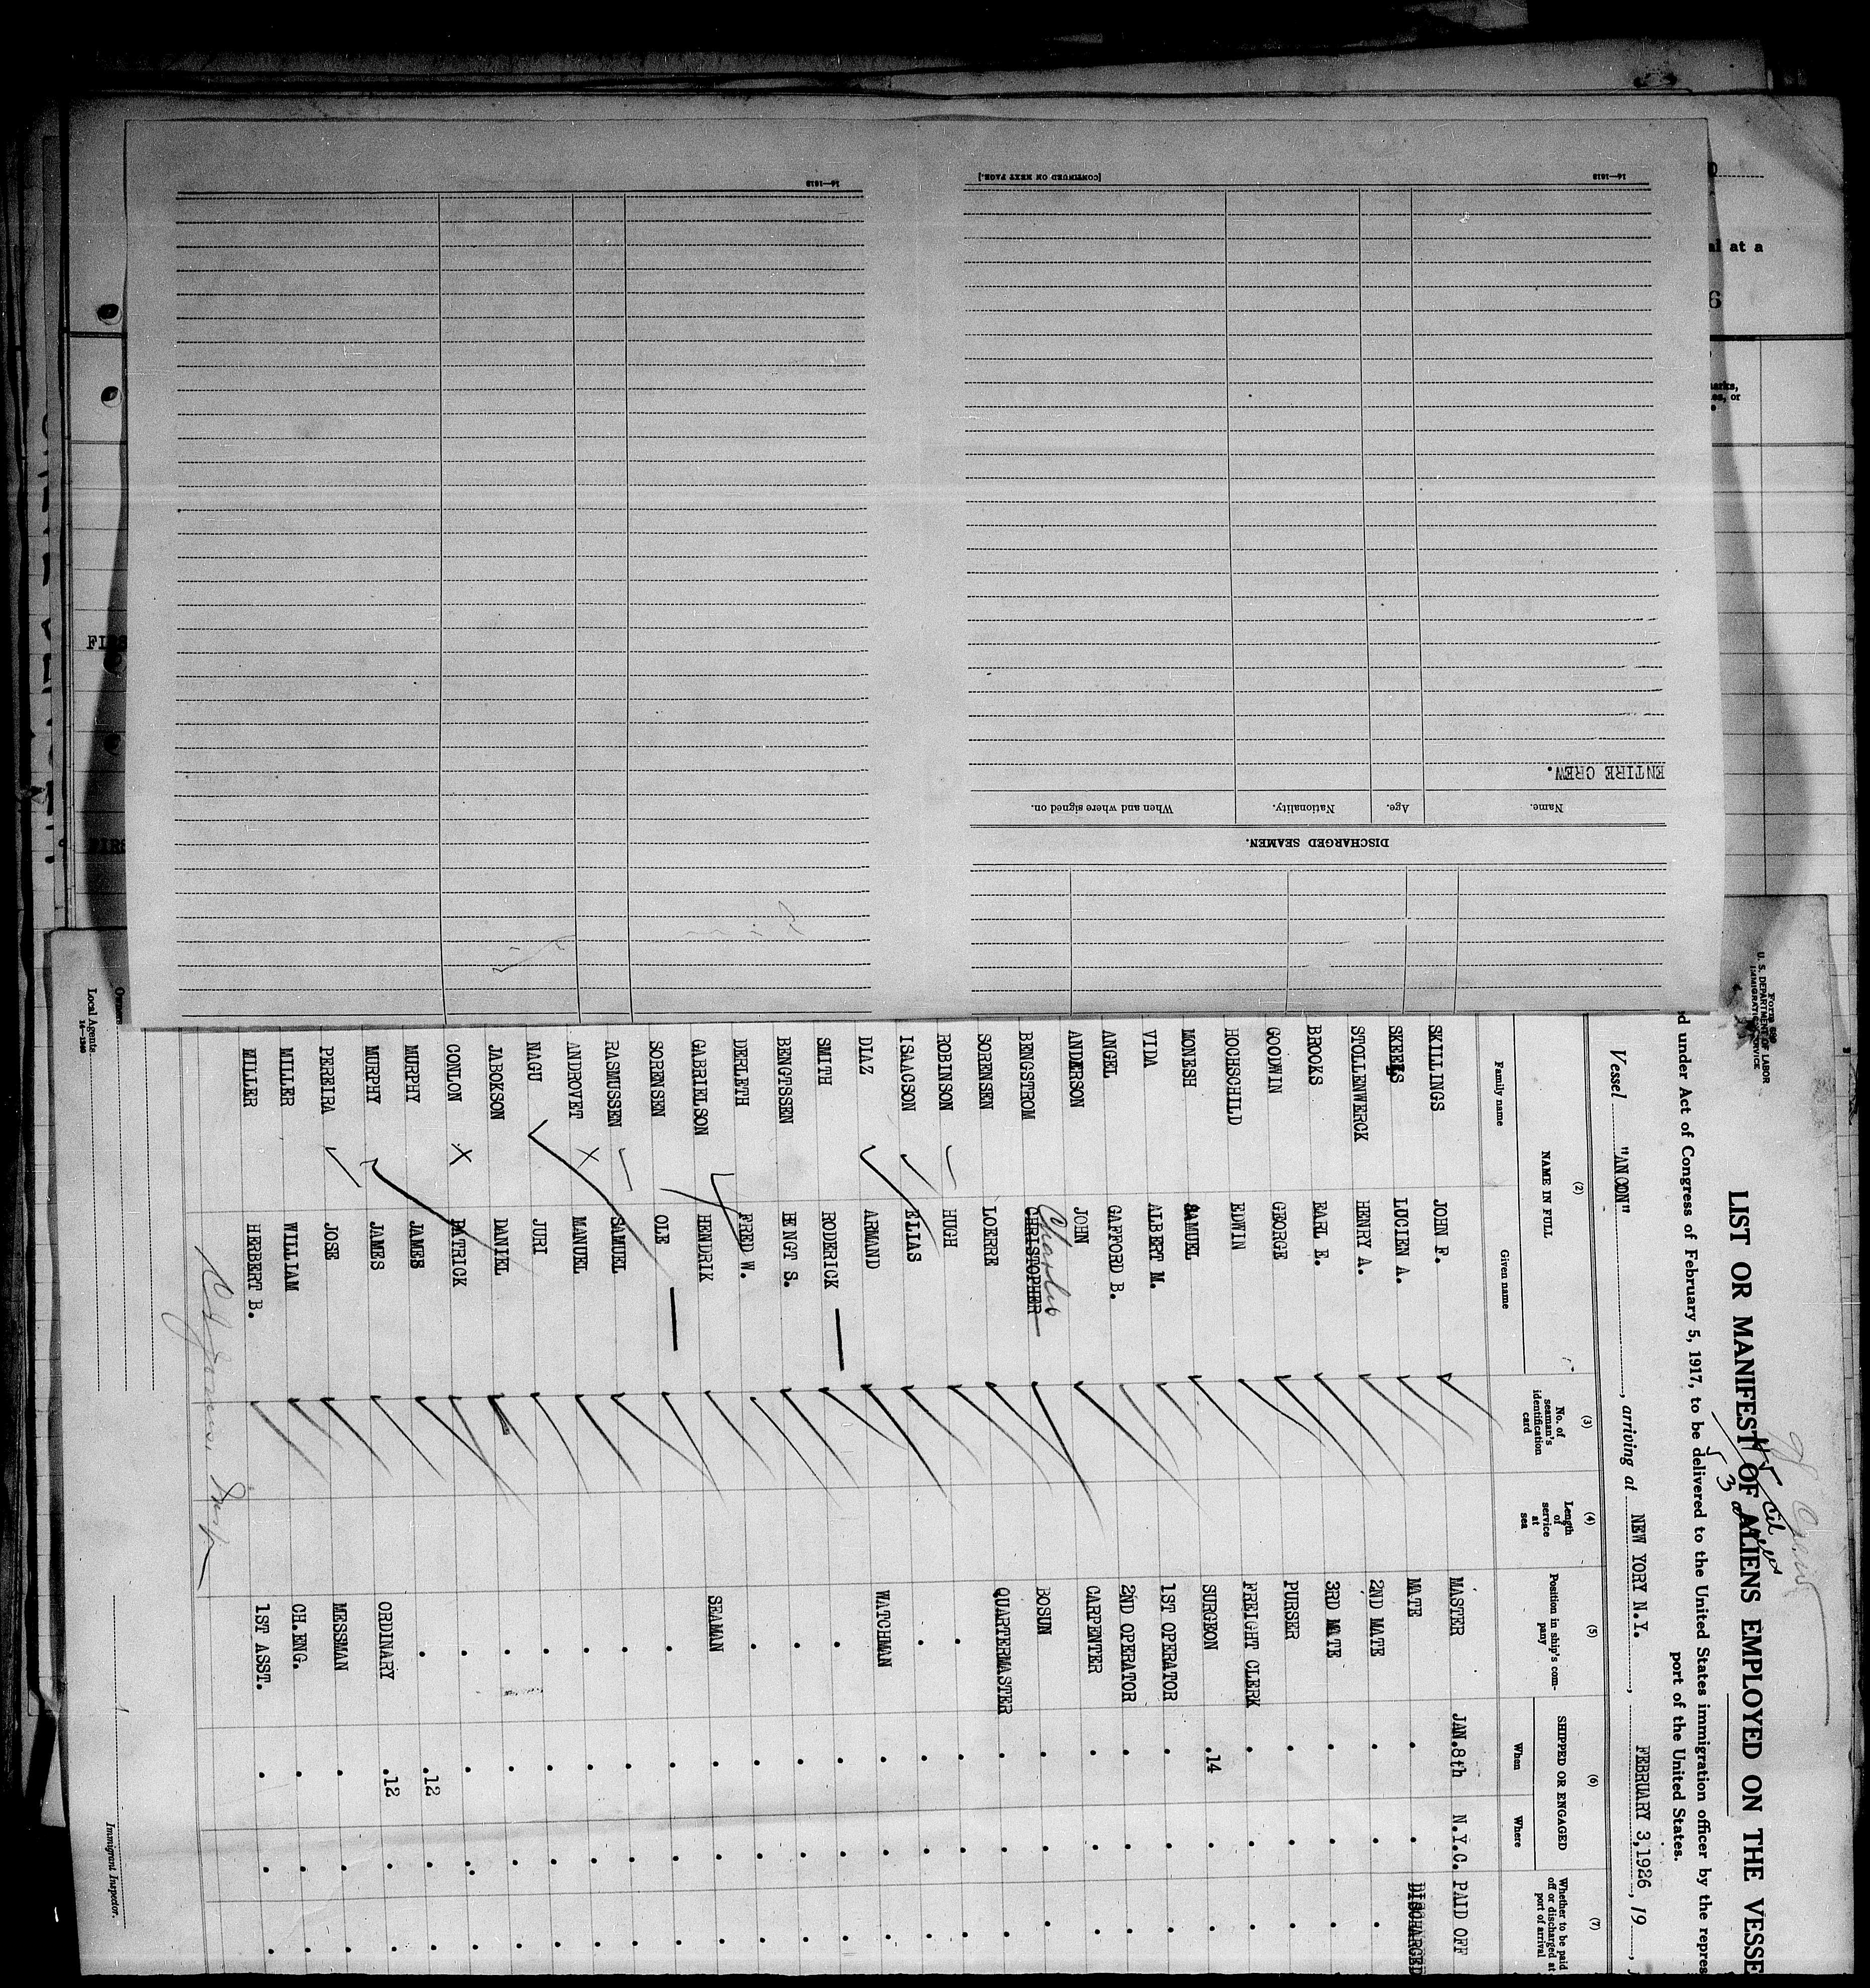 16—1613
[CONTINUED ON NEXT PAGE.]
16—1613
ENTIRE CREW.
Name. Age. Nationality. When and where signed on.
DISCHARGED SEAMEN.
al at a
6
arks,
es, or
FIRS
FIRS
Form 689
U. S. DEPARTMENT OF LABOR
IMMIGRATION SERVICE
LIST OR MANIFEST OF ALIENS EMPLOYED ON THE VESSE
d under Act of Congress of February 5, 1917, to be delivered to the United States immigration officer by the repres
port of the United States.
Vessel "ANCON", arriving at NEW YORY N.Y., FEBRUARY 3,1926, 19
(2) (3) (4) (5) (6) (7)
NAME IN FULL
Family name Given name
No. of seaman's identification card
Length of service at sea
Position in ship's company
SHIPPED OR ENGAGED
When Where
Whether to be paid off or discharged at port of arrival
SKILLINGS JOHN F. MASTER JAN.8th N.Y.C. PAID OFF
SKEELS LUCIEN A. MATE . . DISCHARGED
STOLLENWERCK HENRY A. 2ND MATE . . .
BROOKS EARL E. 3RD MATE . . .
GOODWIN GEORGE PURSER . . .
HOCHSCHILD EDWIN FREIGHT CLERK . . .
MONESH SAMUEL SURGEON .14 . .
VIDA ALBERT M. 1ST OPERATOR . . .
ANGEL GAFFORD B. 2ND OPERATOR . . .
ANDERSON JOHN CARPENTER . . .
Charles
BENGSTROM CHRISTOPHER BOSUN . . .
SORENSEN LOERRE QUARTERMASTER . . .
ROBINSON HUGH . . . .
ISAACSON ELIAS . . . .
DIAZ ARMAND WATCHMAN . . .
SMITH RODERICK . . . .
BENGTSSEN BENGT S. . . . .
DERLETH FRED W. . . . .
GABRIELSON HENDRIK SEAMAN . . .
SORENSEN OLE . . . .
RASMUSSEN SAMUEL . . . .
ANDROVET X MANUEL . . . .
NAGU JURI . . . .
JABOKSON DANIEL . . . .
CONLON X PATRICK . . . .
MURPHY JAMES . .12 . .
MURPHY JAMES ORDINARY .12 . .
PERREIRA JOSE MESSMAN . . .
MILLER WILLIAM CH.ENG. . . .
MILLER HERBERT B. 1ST ASST. . . .
Owners
Local Agents
16—1340
Immigrant Inspector.